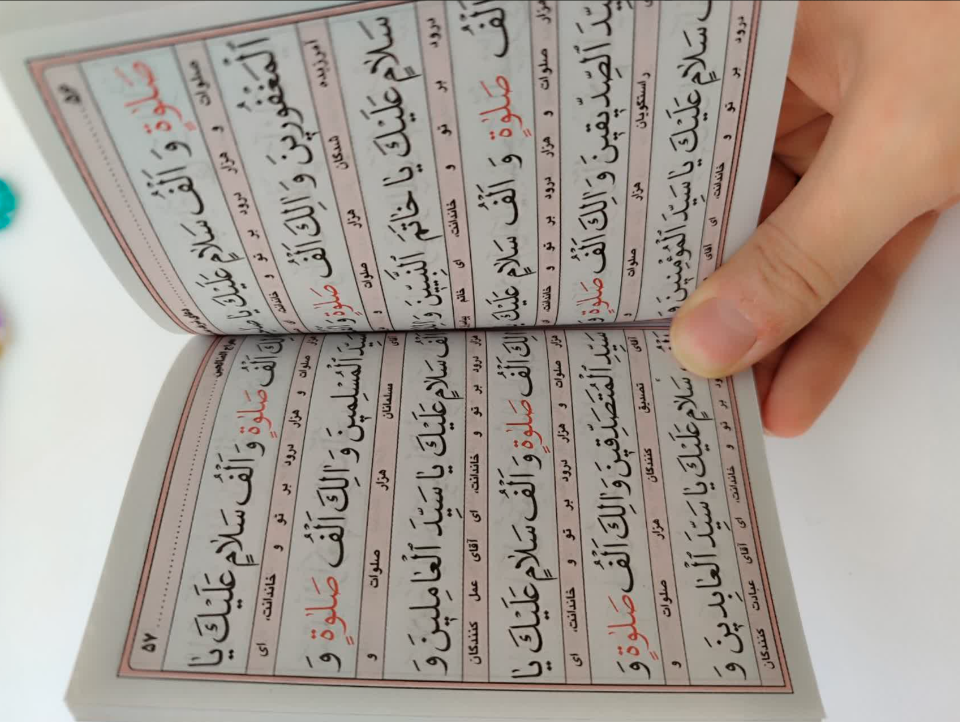 ۵۶
صَلوٰةٍ وَ اَلْفُ سَلامٍ عَلَيْكَ يا
صلوات و هزار درود بر تو و خاندانت
الْمَغْفُورينَ وَ الِكَ اَلْفُ صَلوٰةٍ وَ
آمرزیده شدگان هزار صلوات و
سَلامٍ عَلَيْكَ يا خاتَمَ النَّبِيّينَ وَ
درود بر تو و خاندانت، ای ختم
اَلْفُ صَلوٰةٍ وَ اَلْفُ سَلامٍ عَلَيْكَ
هزار صلوات و هزار درود بر تو و خاندانت
سَيِّدَ الصِّدّيقينَ وَ الِكَ اَلْفُ صَلوٰةٍ وَ
راستگویان هزار صلوات و
سَلامٍ عَلَيْكَ يا سَيِّدَ الْمُؤْمِنينَ وَ
درود بر تو و خاندانت، ای آقای
معراج الصالحین ۵۷
الِكَ اَلْفُ صَلوٰةٍ وَ اَلْفُ سَلامٍ عَلَيْكَ يا
هزار صلوات و هزار درود بر تو و خاندانت، ای
سَيِّدَ الْمُسْلِمينَ وَ الِكَ اَلْفُ صَلوٰةٍ وَ
آقای مسلمانان هزار صلوات و
اَلْفُ سَلامٍ عَلَيْكَ يا سَيِّدَ الْعامِلينَ وَ
هزار درود بر تو و خاندانت، ای آقای عمل کنندگان
الِكَ اَلْفُ صَلوٰةٍ وَ اَلْفُ سَلامٍ عَلَيْكَ يا
هزار صلوات و هزار درود بر تو و خاندانت، ای
سَيِّدَ الْمُتَصَدِّقينَ وَ الِكَ اَلْفُ صَلوٰةٍ وَ
آقای تصدیق کنندگان هزار صلوات و
سَلامٍ عَلَيْكَ يا سَيِّدَ الْعابِدينَ وَ
درود بر تو و خاندانت، ای آقای عبادت کنندگان